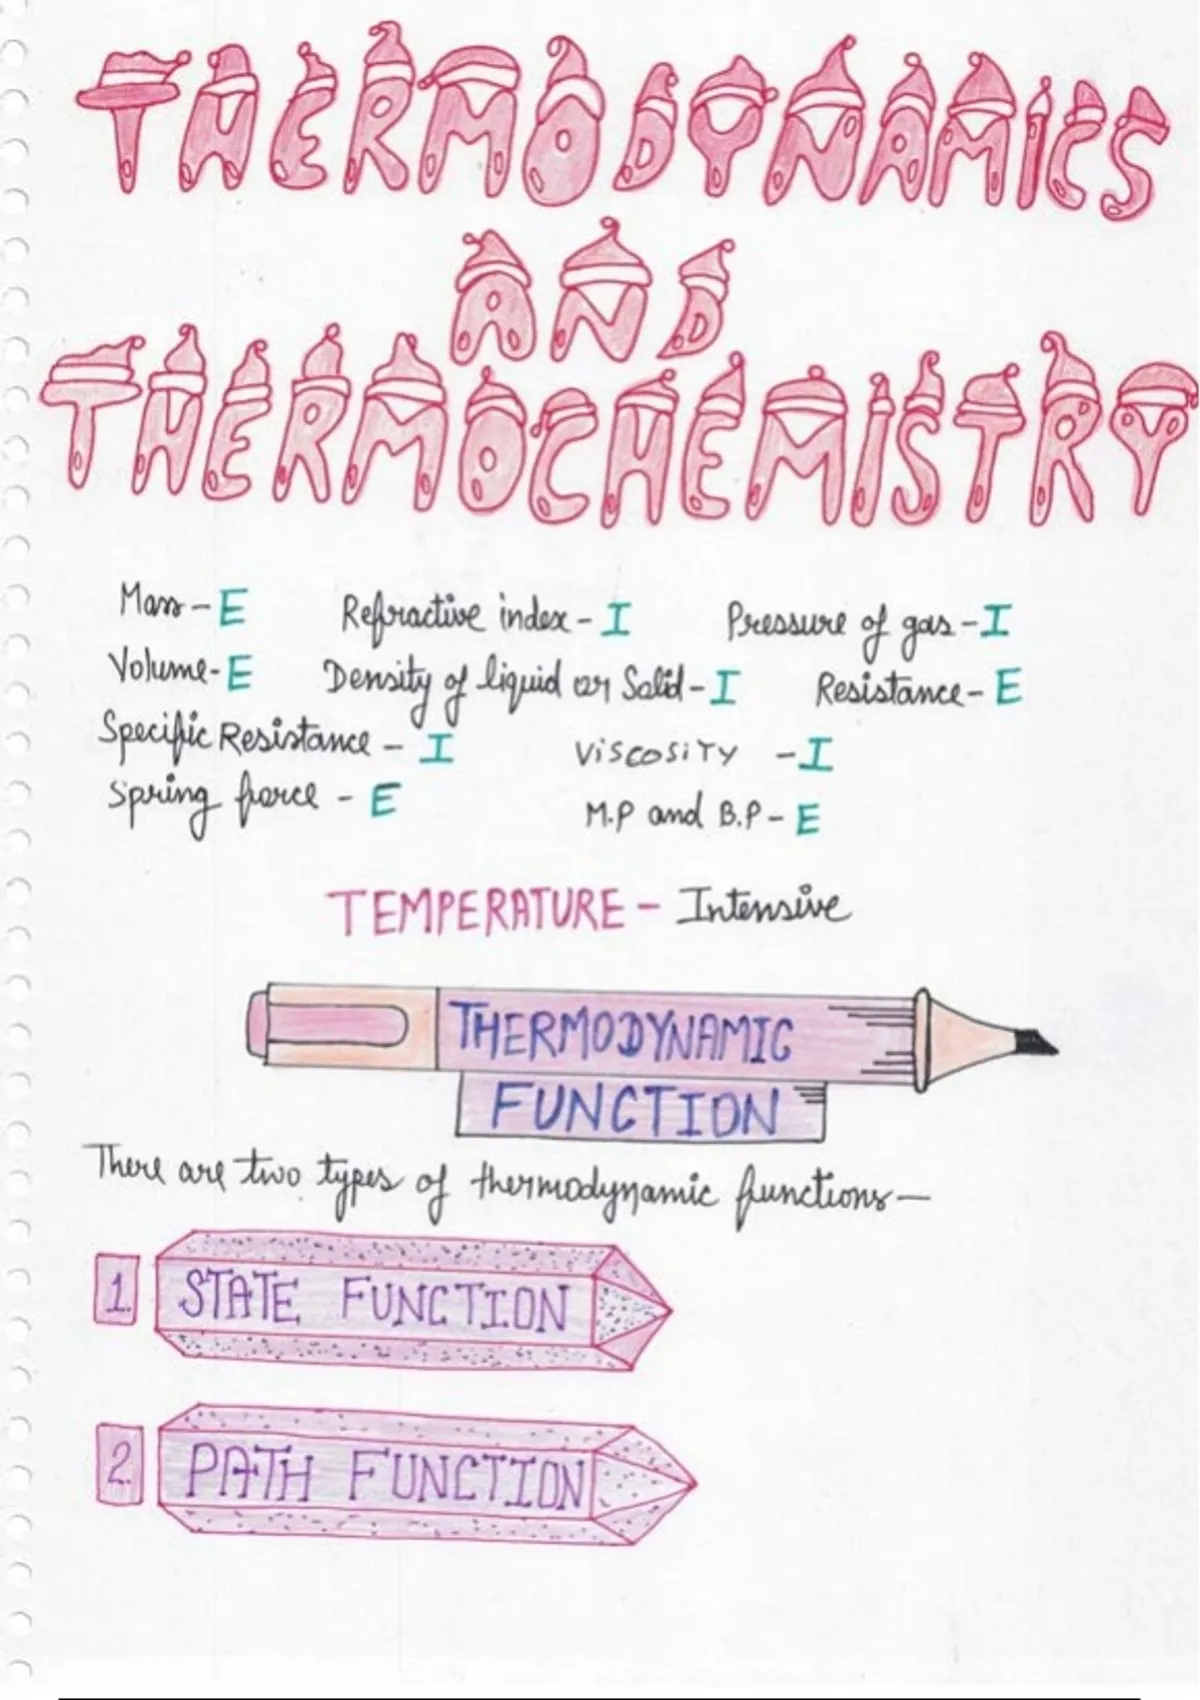 THERMODYNAMICS
AND
THERMOCHEMISTRY
Mass - E Refractive index - I Pressure of gas - I
Volume - E Density of liquid or Solid - I Resistance - E
Specific Resistance - I VISCOSITY - I
Spring force - E M.P and B.P - E
TEMPERATURE - Intensive
THERMODYNAMIC
FUNCTION
There are two types of thermodynamic functions—
1. STATE FUNCTION
2. PATH FUNCTION